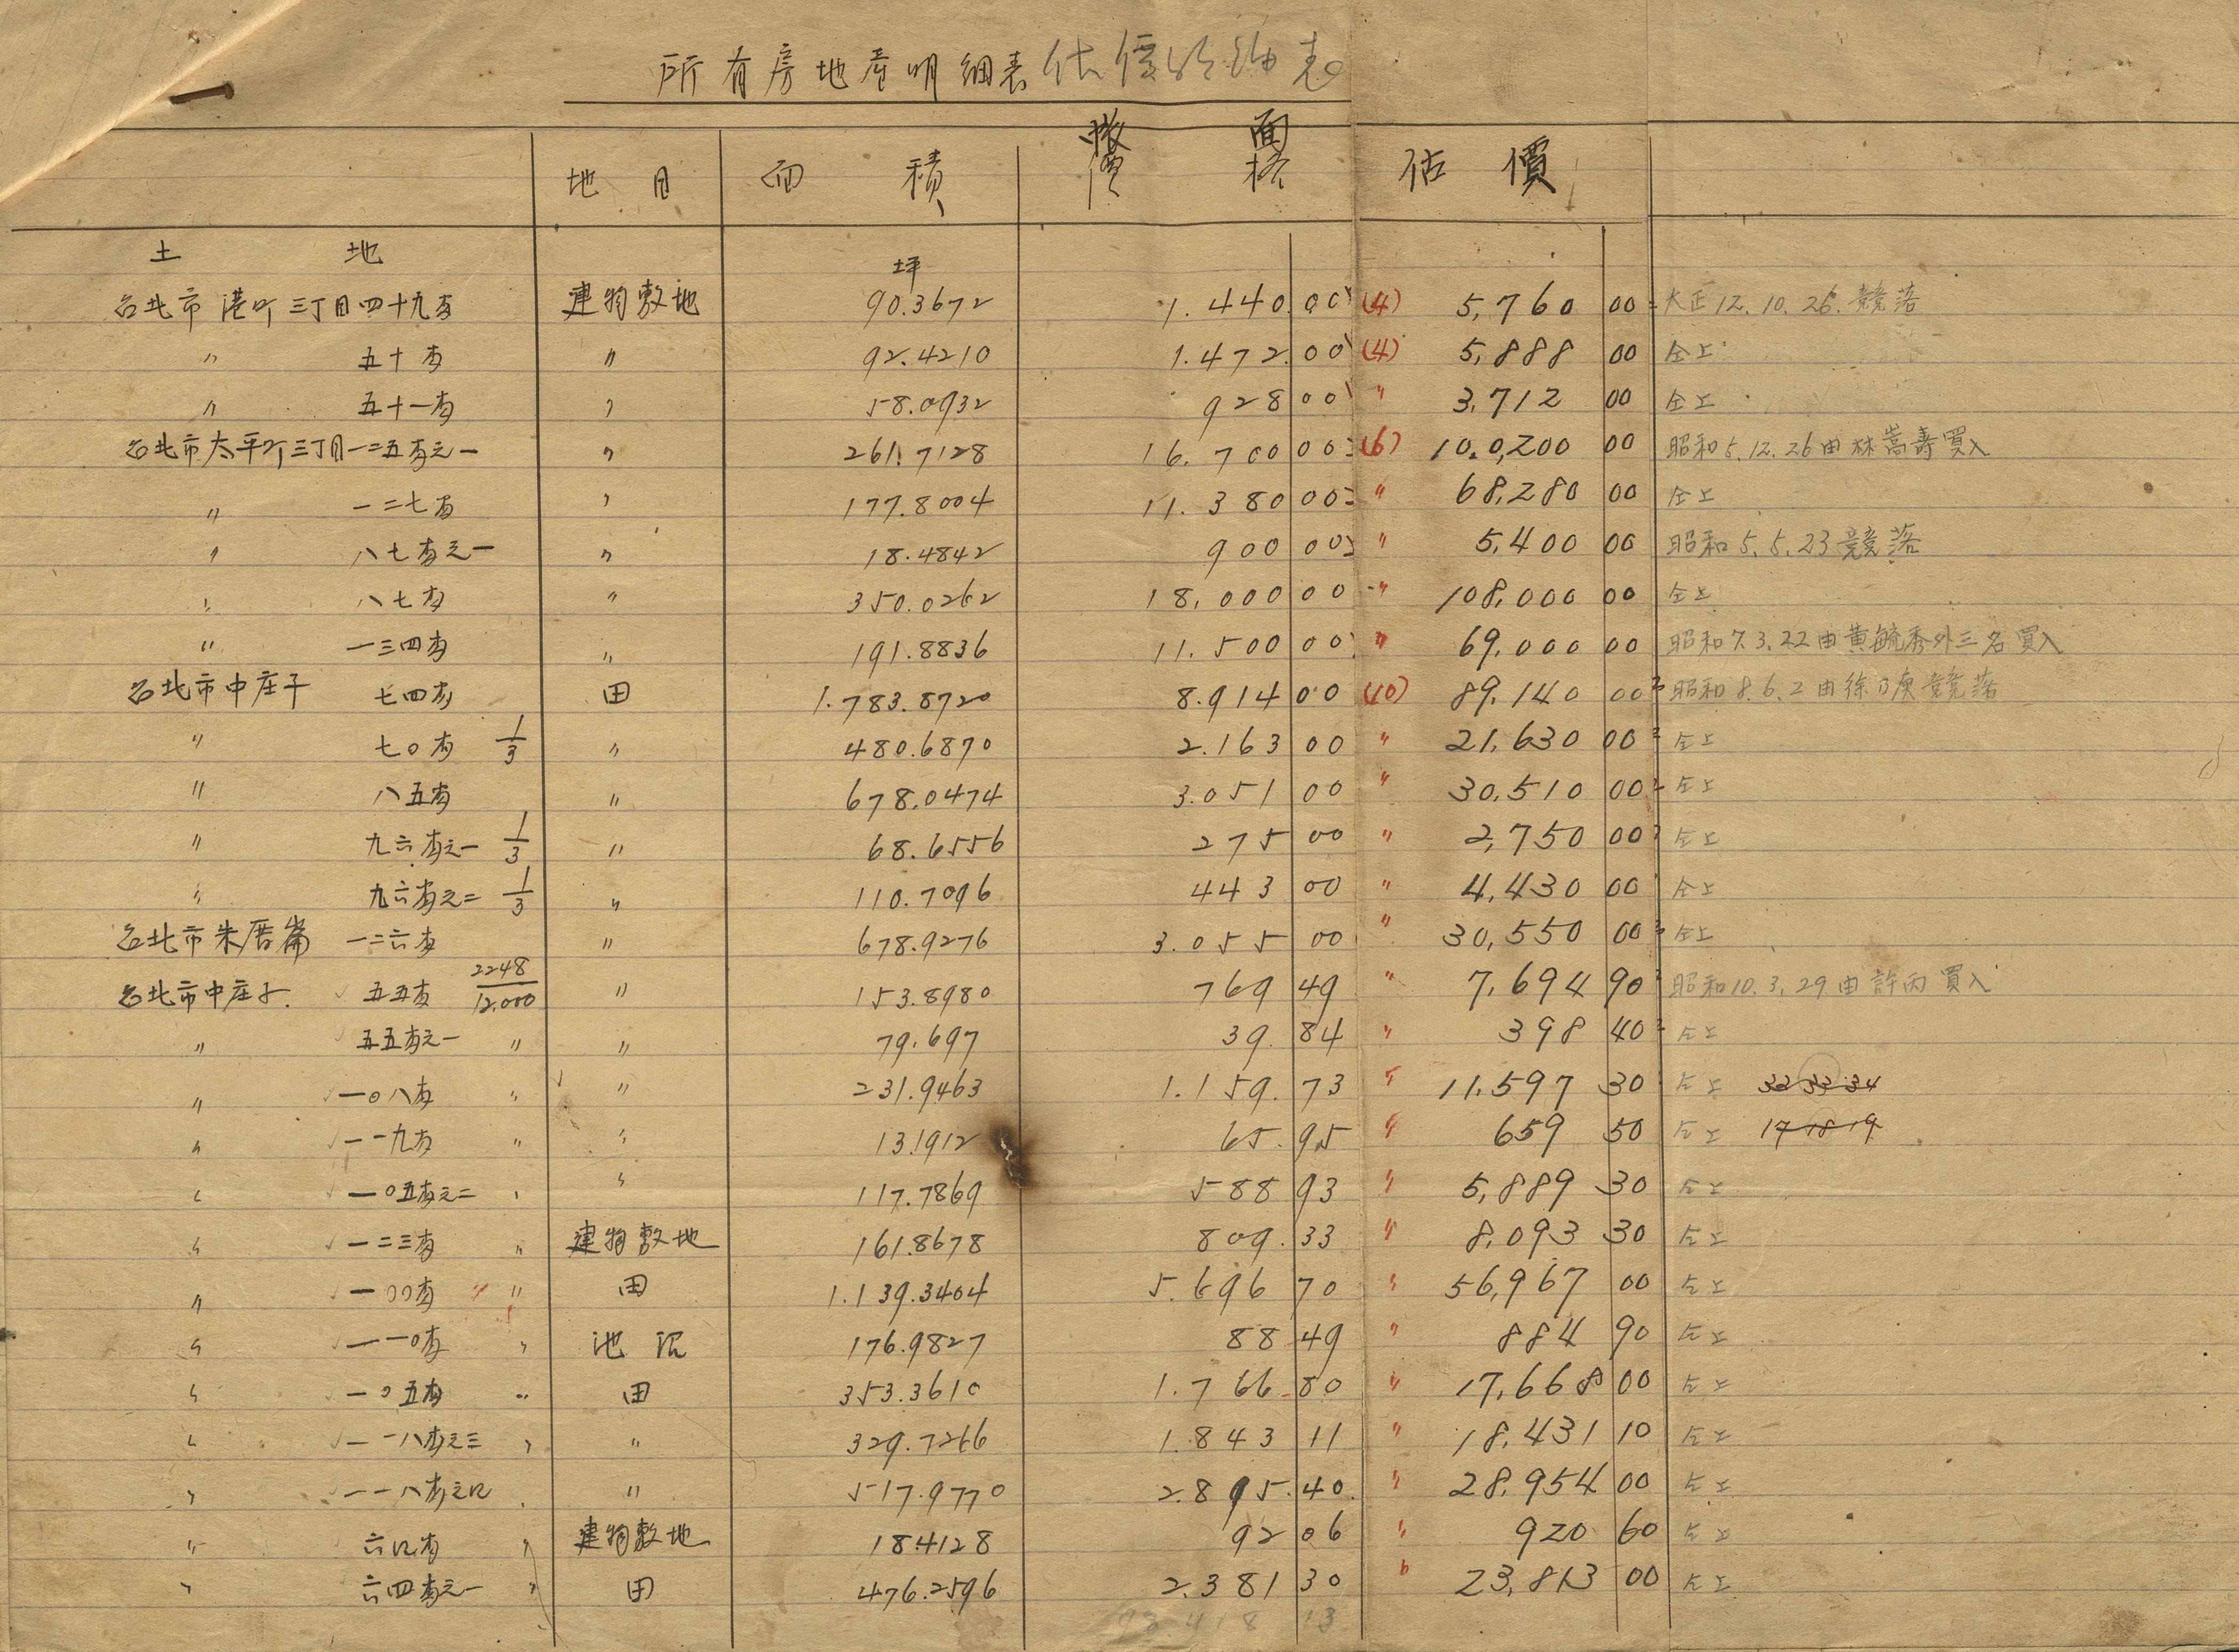 所有房地産明細表 估價明細表
地目 面積 帳面價格 估價
土地 坪
台北市港町三丁目四十九番 建物敷地 90.3672 1.440.00 (4) 5,760 00 大正12.10.26.競落
〃 五十番 〃 92.4210 1.472.00 (4) 5,888 00 仝上
〃 五十一番 〃 58.0932 928 00 〃 3,712 00 仝上
台北市太平町三丁目一二五番之一 〃 261.7128 16.700 00 (6) 10.0,200 00 昭和5.12.26由林嵩壽買入
〃 一二七番 〃 177.8004 11.380 00 〃 68,280 00 仝上
〃 八七番之一 〃 18.4842 900 00 〃 5,400 00 昭和5.5.23競落
〃 八七番 〃 350.0262 18.000 00 〃 108,000 00 仝上
〃 一三四番 〃 191.8836 11.500 00 〃 69,000 00 昭和7.3.22由黄毓秀外三名買入
台北市中庄子 七四番 田 1.783.8720 8.914 00 (10) 89,140 00 昭和8.6.2由徐乃庚競落
〃 七〇番 1/3 〃 480.6870 2.163 00 〃 21,630 00 仝上
〃 八五番 〃 678.0474 3.051 00 〃 30,510 00 仝上
〃 九六番之一 1/3 〃 68.6556 275 00 〃 2,750 00 仝上
〃 九六番之二 1/3 〃 110.7096 443 00 〃 4,430 00 仝上
台北市朱厝崙 一二六番 〃 678.9276 3.055 00 〃 30,550 00 仝上
台北市中庄子. 五五番 2248/12,000 〃 153.8980 769 49 〃 7,694 90 昭和10.3.29.由許丙買入
〃 五五番之一 〃 〃 79.697 39.84 〃 398 40 仝上
〃 一〇八番 〃 〃 231.9463 1.159.73 〃 11,597 30 仝上 32 33 34
〃 一一九番 〃 〃 13.1912 65.95 〃 659 50 仝上 17 18 19
〃 一〇五番之二 〃 〃 117.7869 588 93 〃 5,889 30 仝上
〃 一二三番 〃 建物敷地 161.8678 809.33 〃 8,093 30 仝上
〃 一〇〇番 〃 田 1.139.3404 5.696 70 〃 56,967 00 仝上
〃 一一〇番 〃 池沼 176.9827 88 49 〃 884 90 仝上
〃 一〇五番 〃 田 353.3610 1.766.80 〃 17,668 00 仝上
〃 一一八番之三 〃 〃 329.7266 1.843 11 〃 18,431 10 仝上
〃 一一八番之四 〃 517.9770 2.895.40 〃 28,954 00 仝上
〃 六四番 〃 建物敷地 18.4128 92 06 〃 920 60 仝上
〃 六四番之一 〃 田 476.2596 2.381 30 〃 23,813 00 仝上